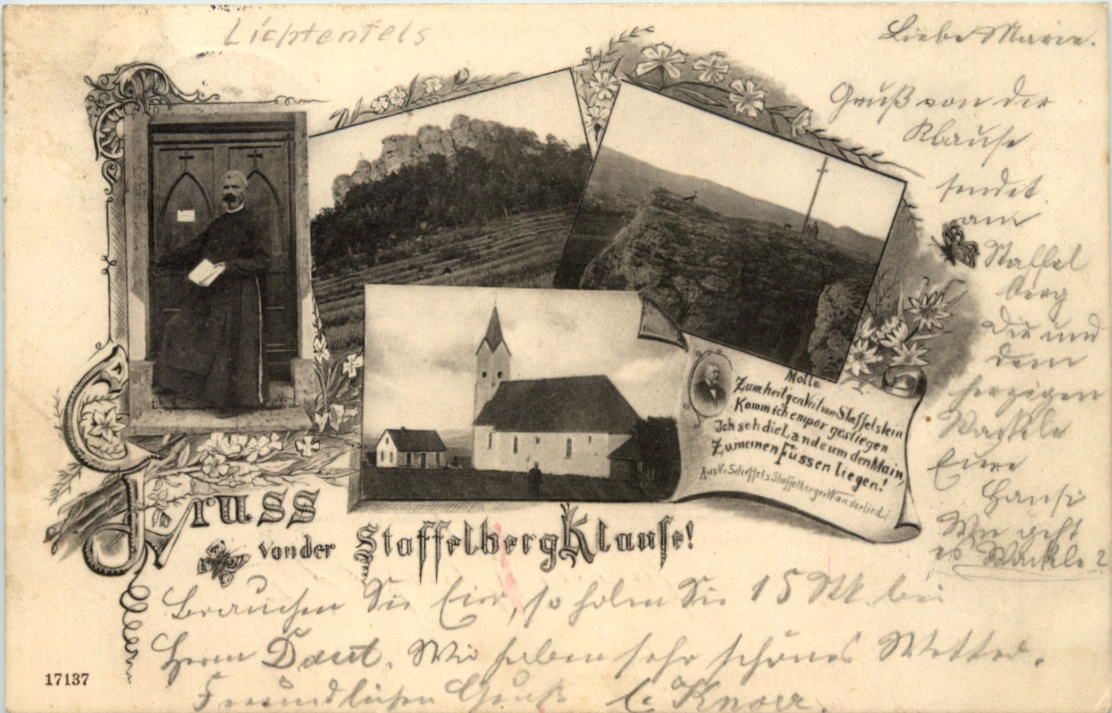 Lichtenfels
Liebe Marie.
Gruß von der
Klause
sendet
am
Staffel
berg
Dir und
dem
herzigen
Wackele
Eure
Hansi
Wie geht
es Wackele?
Motto.
Zum heil'gen Veit von Staffelstein
Komm ich empor gestiegen
Ich seh die Lande um den Main,
Zu meinen Füssen liegen!
Aus V. v. Scheffels Staffelberger Wanderlied.
Gruss
von der Staffelberg Klause!
Brauchen Sie Eier, so holen Sie 15 St. bei
Herrn Daut. Wir haben sehr schönes Wetter.
Freundlichen Gruß C. Knorr.
17137